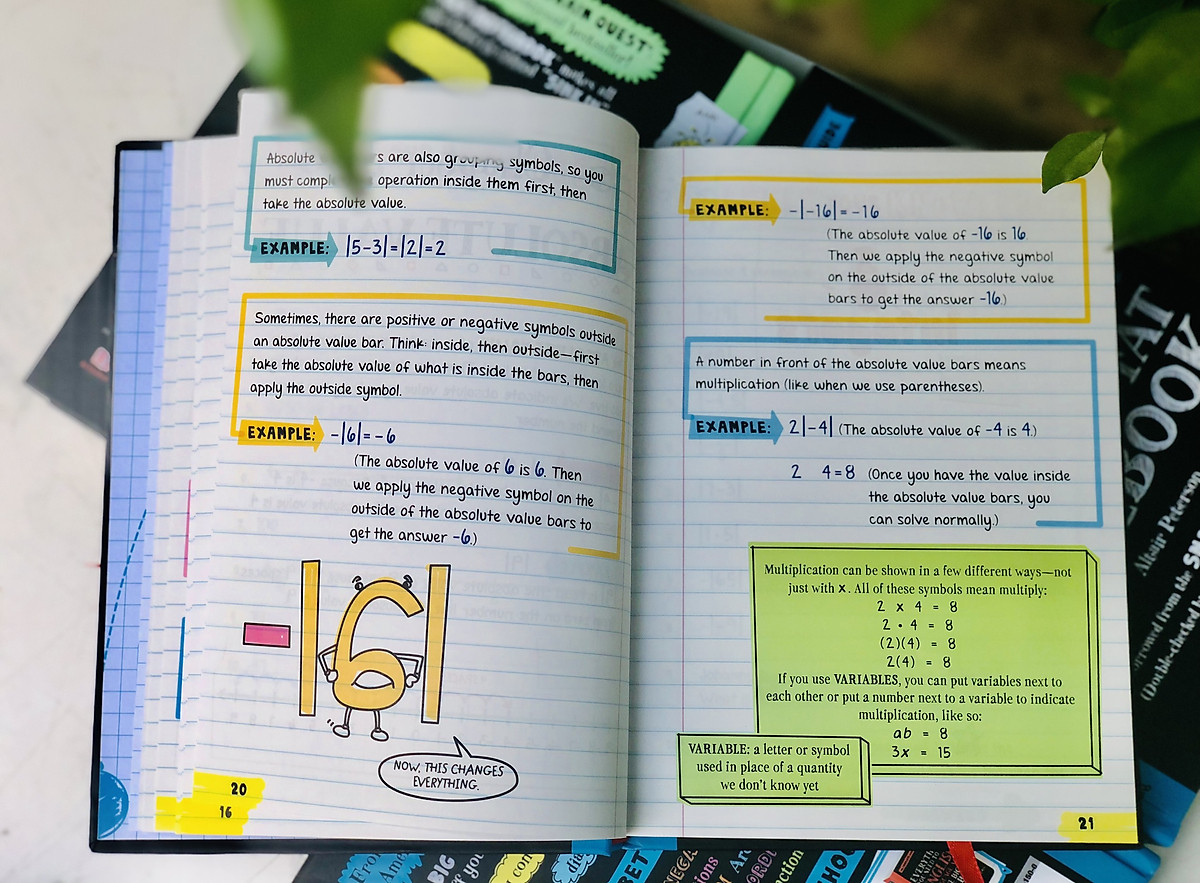 Absolute are also grouping symbols, so you
must operation inside them first, then
take the absolute value.
EXAMPLE: |5-3|=|2|=2
Sometimes, there are positive or negative symbols outside
an absolute value bar. Think: inside, then outside—first
take the absolute value of what is inside the bars, then
apply the outside symbol.
EXAMPLE: -|6|=-6
(The absolute value of 6 is 6. Then
we apply the negative symbol on the
outside of the absolute value bars to
get the answer -6.)
-|6|
NOW, THIS CHANGES
EVERYTHING.
20
16
EXAMPLE: -|-16|=-16
(The absolute value of -16 is 16.
Then we apply the negative symbol
on the outside of the absolute value
bars to get the answer -16.)
A number in front of the absolute value bars means
multiplication (like when we use parentheses).
EXAMPLE: 2|-4| (The absolute value of -4 is 4.)
2 4=8 (Once you have the value inside
the absolute value bars, you
can solve normally.)
Multiplication can be shown in a few different ways—not
just with x. All of these symbols mean multiply:
2 x 4 = 8
2 • 4 = 8
(2)(4) = 8
2(4) = 8
If you use VARIABLES, you can put variables next to
each other or put a number next to a variable to indicate
multiplication, like so:
ab = 8
3x = 15
VARIABLE: a letter or symbol
used in place of a quantity
we don't know yet
21
QUEST
FAT
BOOK
Altair Peterson
from the
(Double-checked
BIG